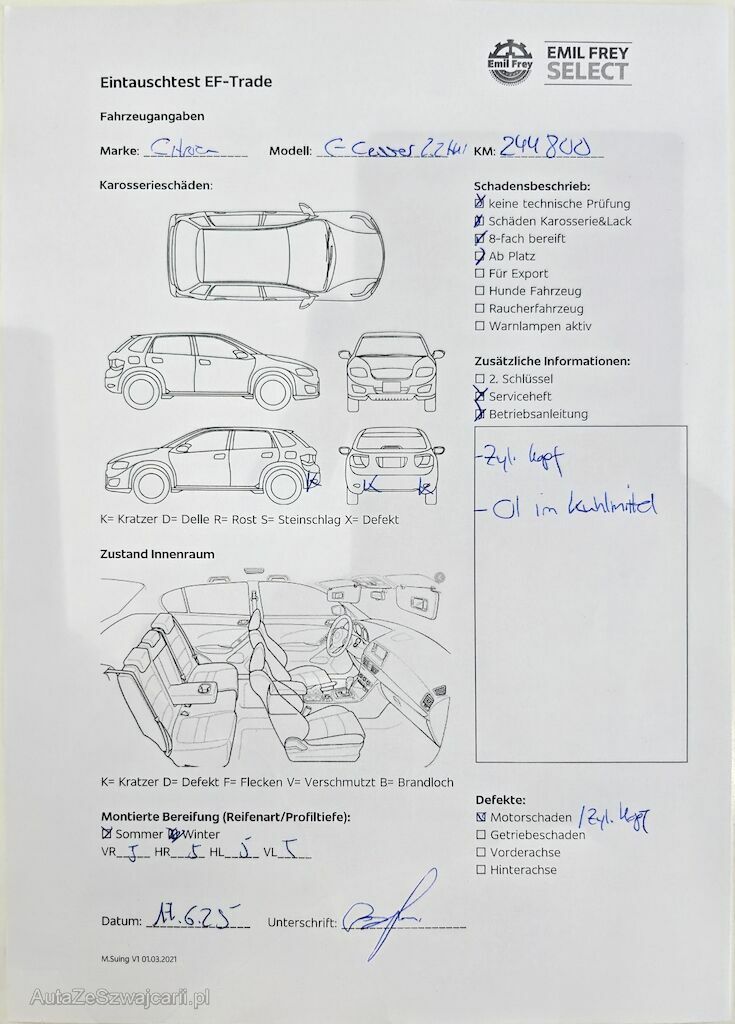 Emil Frey
EMIL FREY
SELECT
Eintauschtest EF-Trade
Fahrzeugangaben
Marke: Citroen Modell: C-Crosser 2.2 Hdi KM: 244800
Karosserieschäden:
Schadensbeschrieb:
keine technische Prüfung
Schäden Karosserie&Lack
8-fach bereift
Ab Platz
Für Export
Hunde Fahrzeug
Raucherfahrzeug
Warnlampen aktiv
Zusätzliche Informationen:
2. Schlüssel
Serviceheft
Betriebsanleitung
- Zyl. Kopf
- Öl im Kühlmittel
K K K
K= Kratzer D= Delle R= Rost S= Steinschlag X= Defekt
Zustand Innenraum
K= Kratzer D= Defekt F= Flecken V= Verschmutzt B= Brandloch
Montierte Bereifung (Reifenart/Profiltiefe):
Sommer Winter
VR 5 HR 5 HL 5 VL 5
Defekte:
Motorschaden / Zyl. Kopf
Getriebeschaden
Vorderachse
Hinterachse
Datum: 17.6.25 Unterschrift:
M.Suing V1 01.03.2021
AutaZeSzwajcarii.pl